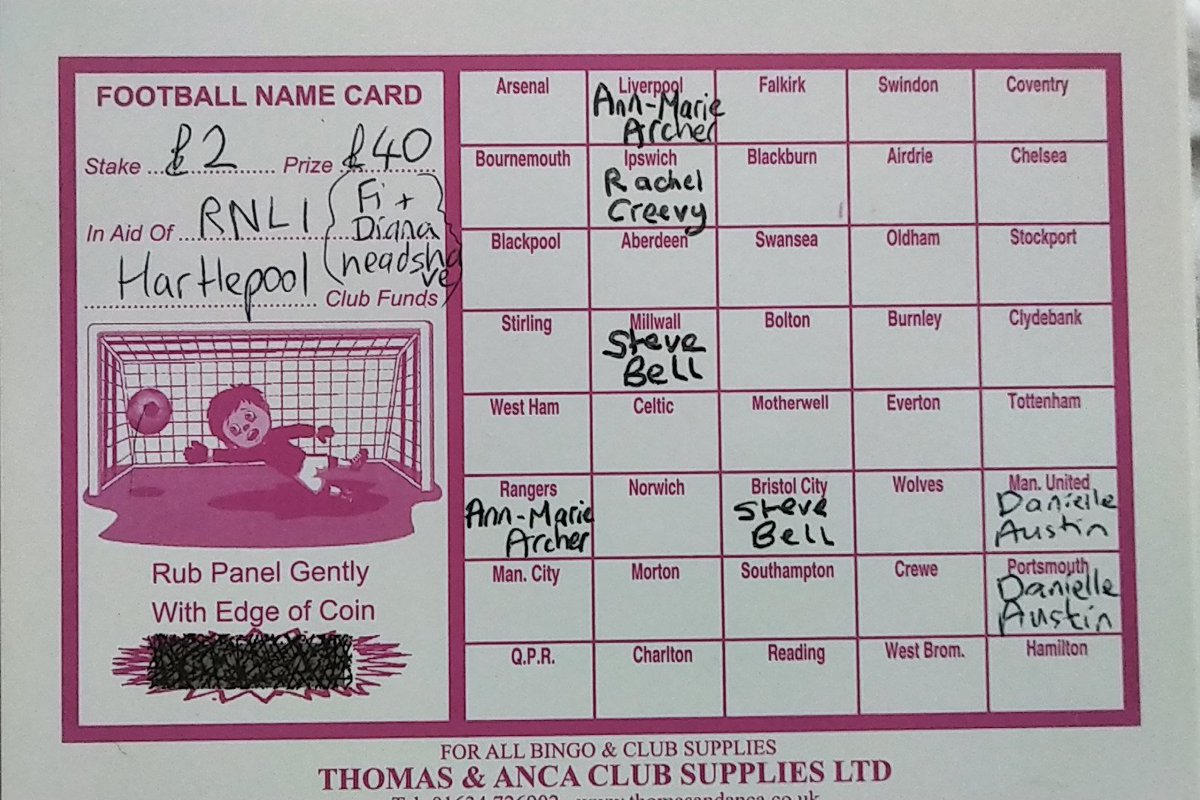 FOOTBALL NAME CARD
Stake £2 Prize £40
In Aid Of RNLI (Fi +
Diana
headsha
ve)
Hartlepool Club Funds
Rub Panel Gently
With Edge of Coin
Arsenal Liverpool Falkirk Swindon Coventry
Ann-Marie
Archer
Bournemouth Ipswich Blackburn Airdrie Chelsea
Rachel
Creevy
Blackpool Aberdeen Swansea Oldham Stockport
Stirling Millwall Bolton Burnley Clydebank
Steve
Bell
West Ham Celtic Motherwell Everton Tottenham
Rangers Norwich Bristol City Wolves Man. United
Ann-Marie Steve Danielle
Archer Bell Austin
Man. City Morton Southampton Crewe Portsmouth
Danielle
Austin
Q.P.R. Charlton Reading West Brom. Hamilton
FOR ALL BINGO & CLUB SUPPLIES
THOMAS & ANCA CLUB SUPPLIES LTD
www.thomasandanca.co.uk